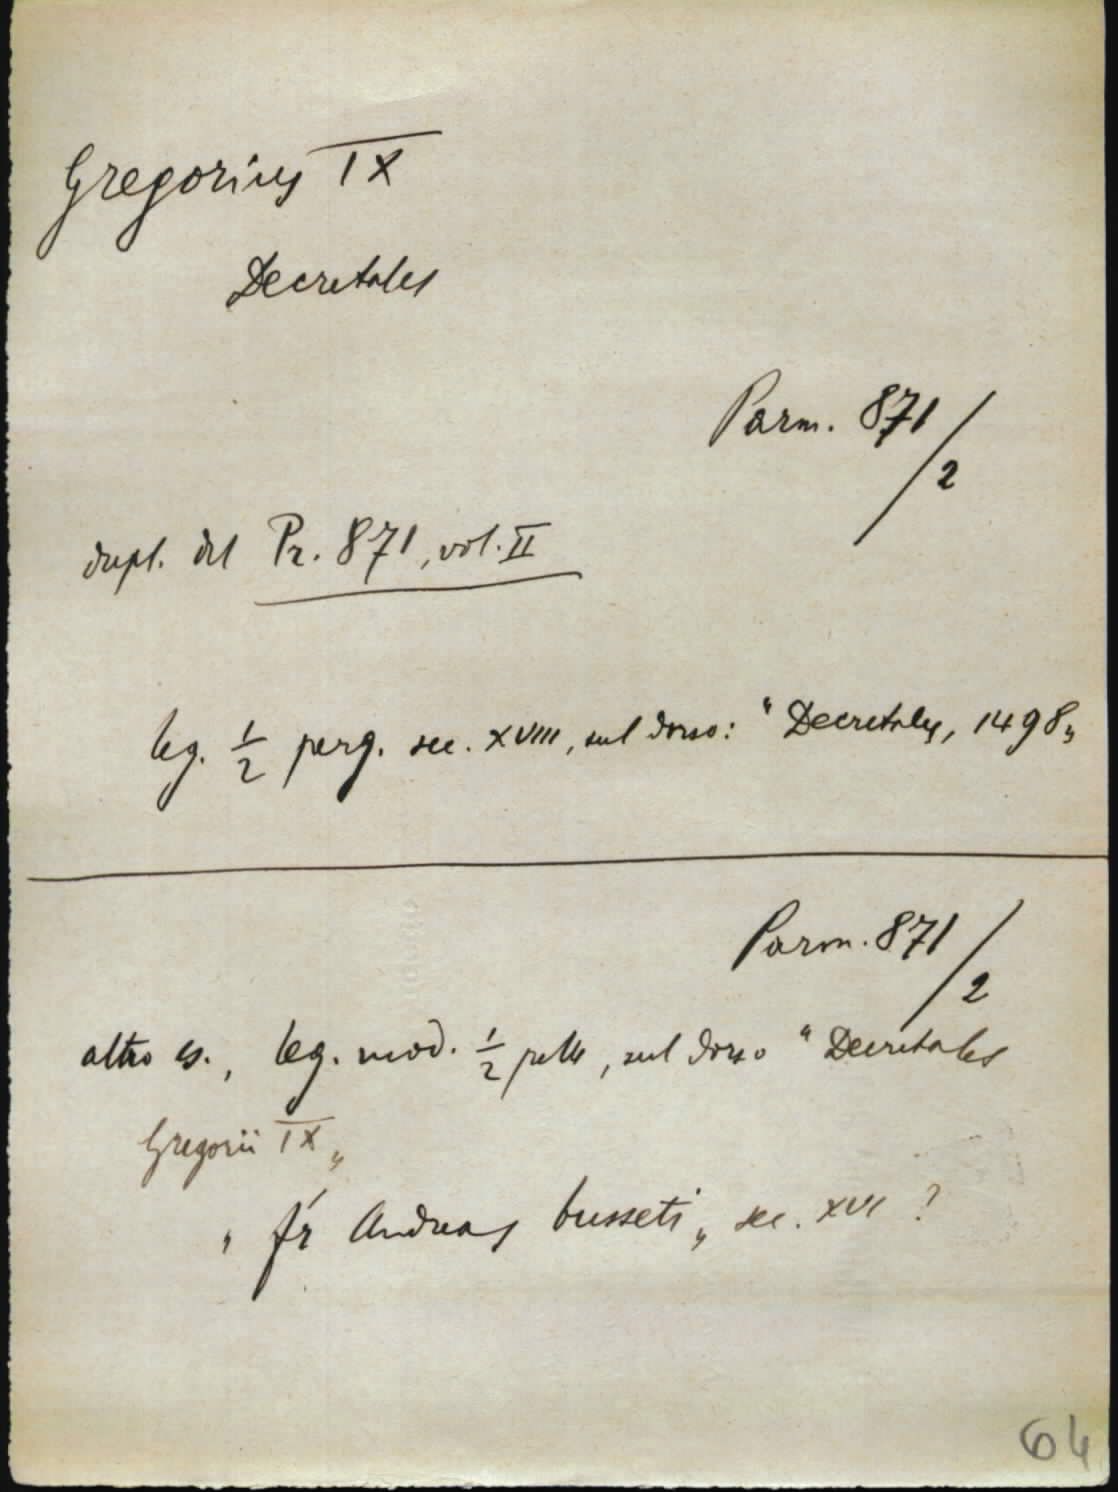 Gregorius IX
Decretales
Parm. 871/2
dupl. del Pr. 871, vol. II
leg. 1/2 perg. sec. XVIII, sul dorso: "Decretales, 1498„
Parm. 871/2
altro es., leg. mod. 1/2 pelle, sul dorso "Decretales
Gregorii IX„
" fr Andreas busseti„ sec. XVI ?
64